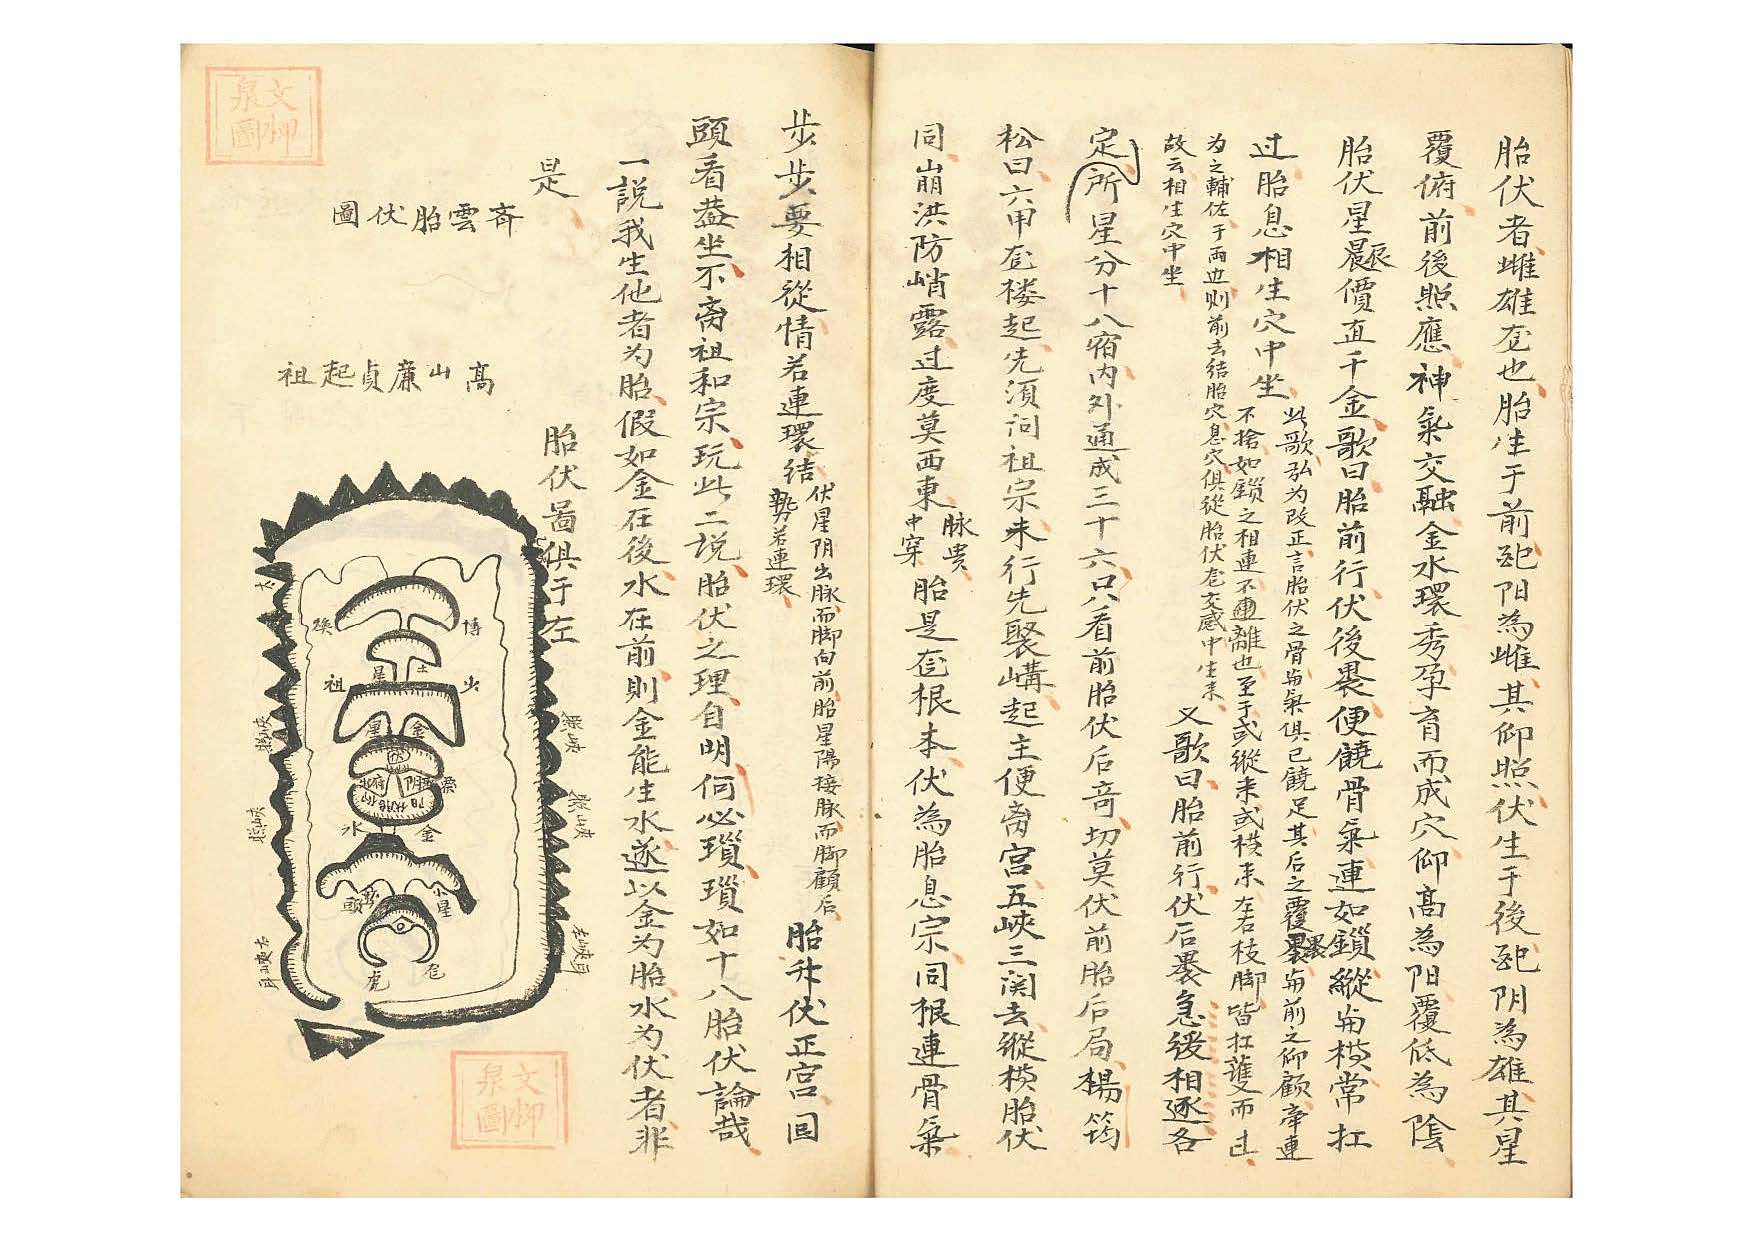 胎伏者雌雄龙也胎生于前配阳為雌其仰照伏生于後配阴為雄其星
覆俯前後照應神氣交融金水環秀孕育而成穴仰高為阳覆低為陰
胎伏星辰價直千金歌曰胎前行伏後裹便饒骨氣連如鎖縱与横常扛
过胎息相生穴中坐
此歌弘为改正言胎伏之骨与氣俱已饒足其后之覆裹与前之仰顧牵連
不捨如鎖之相連不離也至于或縱来或横来左右枝脚皆扛護而过
为之輔佐于两边则前去结胎穴息穴俱從胎伏龙交感中生来
故云相生穴中坐
又歌曰胎前行伏后裹急缓相逐各
定所星分十八宿内外通成三十六只看前胎伏后奇切莫伏前胎后局楊筠
松曰六甲龙楼起先須问祖宗来行先聚講起主便离宫五峽三関去縱横胎伏
同崩洪防峭露过度莫西東
脉貴
中穿
胎是龙根本伏為胎息宗同根連骨氣
步步要相從情若連環结
伏星阴出脉而脚向前胎星陽接脉而脚顧后
勢若連環
胎升伏正宫回
頭看蓋坐不离祖和宗玩此二説胎伏之理自明何必瑣瑣如十八胎伏論哉
一説我生他者为胎假如金在後水在前則金能生水遂以金为胎水为伏者非
是
胎伏啚俱于左
斉雲胎伏圖
高山廉貞起祖
博
換
土
星
少
祖
金
星
伏
金
水
星
龙
虎
文柳
泉圖
文柳
泉圖